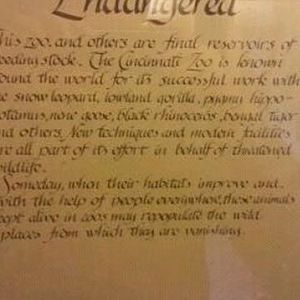 Endangered
This zoo, and others are final reservoirs of
eeding stock. The Cincinnati Zoo is known
ound the world for its successful work with
he snow leopard, lowland gorilla, pygmy hippo-
otamus, nene goose, black rhinoceros, bengal tiger
nd others. New techniques and modern facilities
re all part of its effort in behalf of threatened
wildlife.
Someday, when their habitats improve and
with the help of people everywhere, these animals
kept alive in zoos may repopulate the wild
places from which they are vanishing.